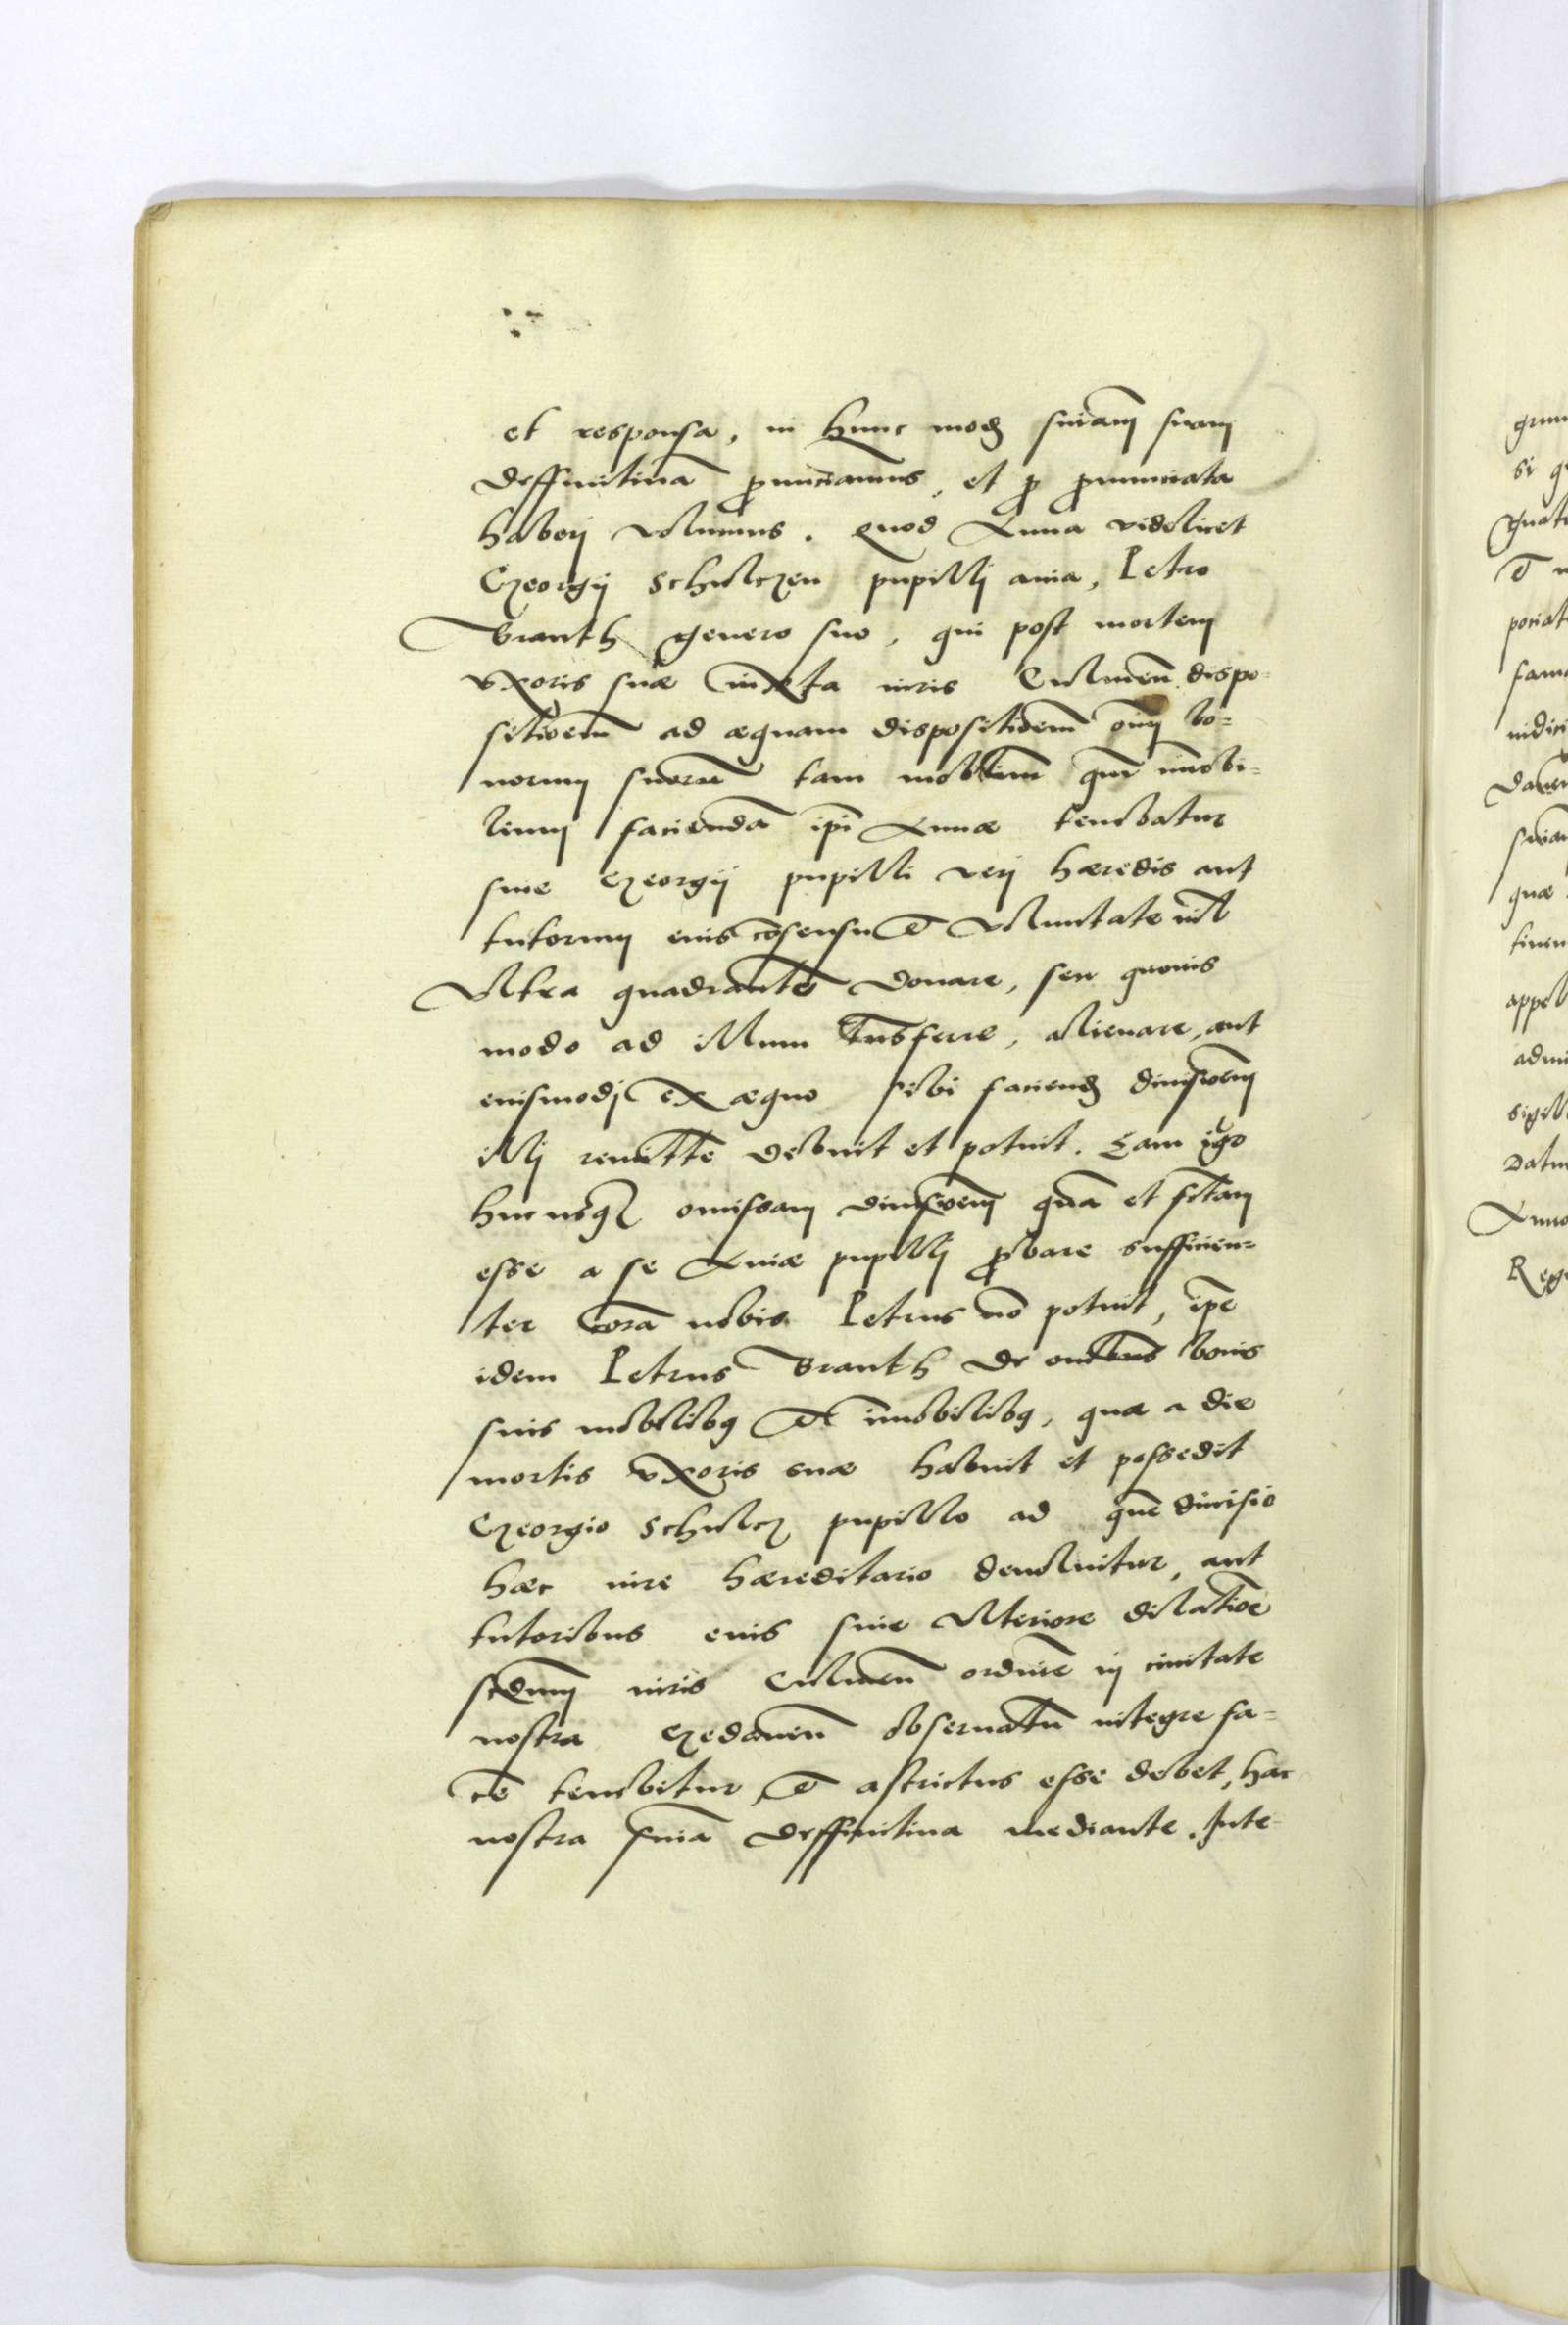 et responsa, in hunc mod sniam suam
deffinitiua pronunciamus, et pro pronunciata
haberj volumus. Quod Anna videlicet
Georgij Schulczen pupillj auia, Petro
Branth genero suo, qui post mortem
vxoris suæ iuxta iuris Culmen dispo-
sitioem ad æquam dispositioem oim bo-
norum suoru tam mobilium qua imobi-
lium facienda ipi Annæ tenebatur
sine Georgij pupilli verj hæredis aut
tutorum eius cosensu et voluntate nil
vltra quadrante donare, seu quouis
modo ad illum trnsferre, alienare, aut
eiusmodj ex æquo sibi faciend diuisioem
illj remitte debuit et potuit. Eam igr
hucusq omissam diuisioem qua et fctam
esse a se Auiæ pupillj probare sufficien-
ter cora nobis Petrus no potuit, ipe
idem Petrus Branth de omibus bonis
suis mobilibq et imobilibq, quæ a die
mortis vxoris suæ habuit et possedit
Georgio Schulcz pupillo ad que diuisio
hæc iure hæreditario deuoluitur, aut
tutoribus eius sine vlteriore dilatioe
scdum iuris Culmen ordine in ciuitate
nostra Gedanen obseruatu integre fa-
ce tenebitur, et astrictus esse debet, hac
nostra snia deffinitiua mediante. Inte-